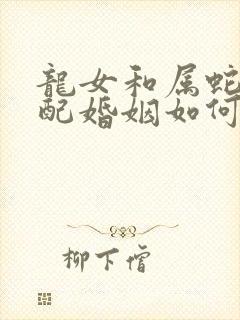 龍女和属蛇
配婚姻如何
柳下惛